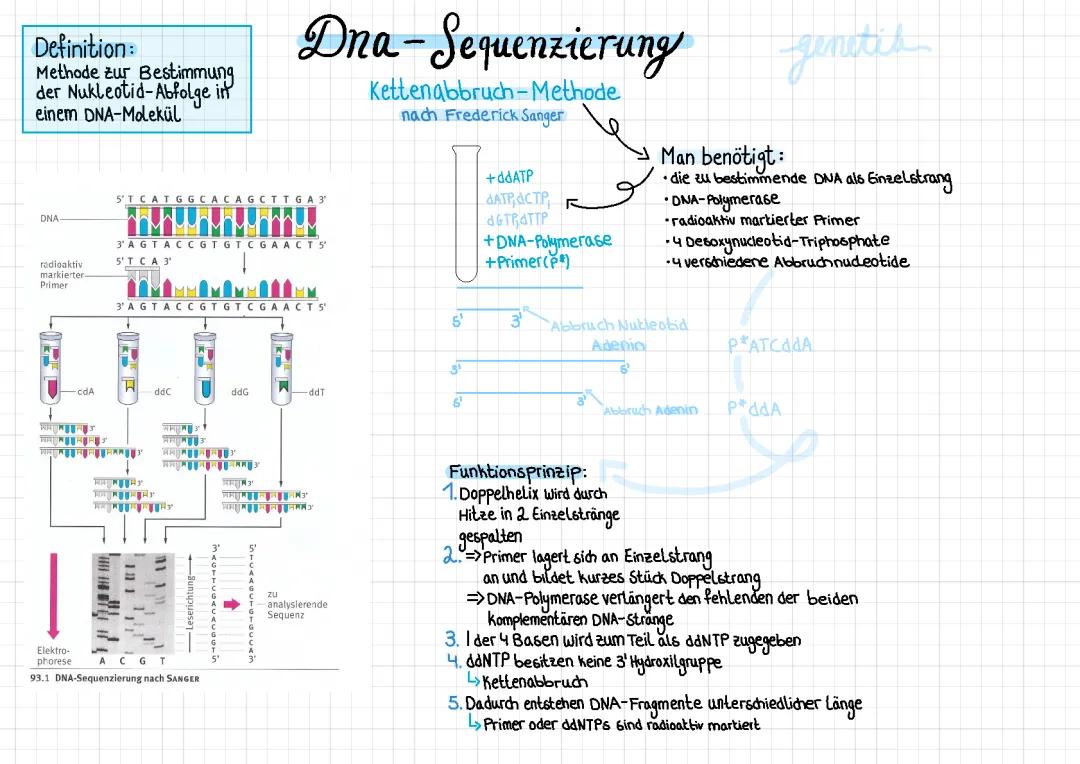 Definition:
Methode zur Bestimmung
der Nukleotid-Abfolge in
einem DNA-Molekül
Dna-Sequenzierung
genetik
Kettenabbruch-Methode
nach Frederick Sanger
+ddATP
dATP,dCTP,
dGTP,dTTP
+DNA-Polymerase
+Primer(P*)
Man benötigt:
• die zu bestimmende DNA als Einzelstrang
• DNA-Polymerase
• radioaktiv markierter Primer
• 4 Desoxynucleotid-Triphosphate
• 4 verschiedene Abbruchnucleotide
5' 3'
Abbruch Nukleotid
Adenin
3' 5'
5' 3'
Abbruch Adenin
P*ATCddA
P*ddA
5' T C A T G G C A C A G C T T G A 3'
DNA
3' A G T A C C G T G T C G A A C T 5'
radioaktiv
markierter
Primer
5' T C A 3'
3' A G T A C C G T G T C G A A C T 5'
ddA
ddC
ddG
ddT
3'
3'
3'
3'
3'
3'
3'
3'
3'
3'
3'
3'
3'
Elektro-
phorese
A C G T
Leserichtung
3' A G T T C G A C A C G G T 5'
5' T C A A G C T G T G C C A 3'
zu
analysierende
Sequenz
93.1 DNA-Sequenzierung nach SANGER
Funktionsprinzip:
1. Doppelhelix wird durch
Hitze in 2 Einzelstränge
gespalten
2. ⇒Primer lagert sich an Einzelstrang
an und bildet kurzes Stück Doppelstrang
⇒DNA-Polymerase verlängert den fehlenden der beiden
komplementären DNA-Stränge
3. 1 der 4 Basen wird zum Teil als ddNTP zugegeben
4. ddNTP besitzen keine 3' Hydroxilgruppe
↳Kettenabbruch
5. Dadurch entstehen DNA-Fragmente unterschiedlicher Länge
↳Primer oder ddNTPs sind radioaktiv markiert